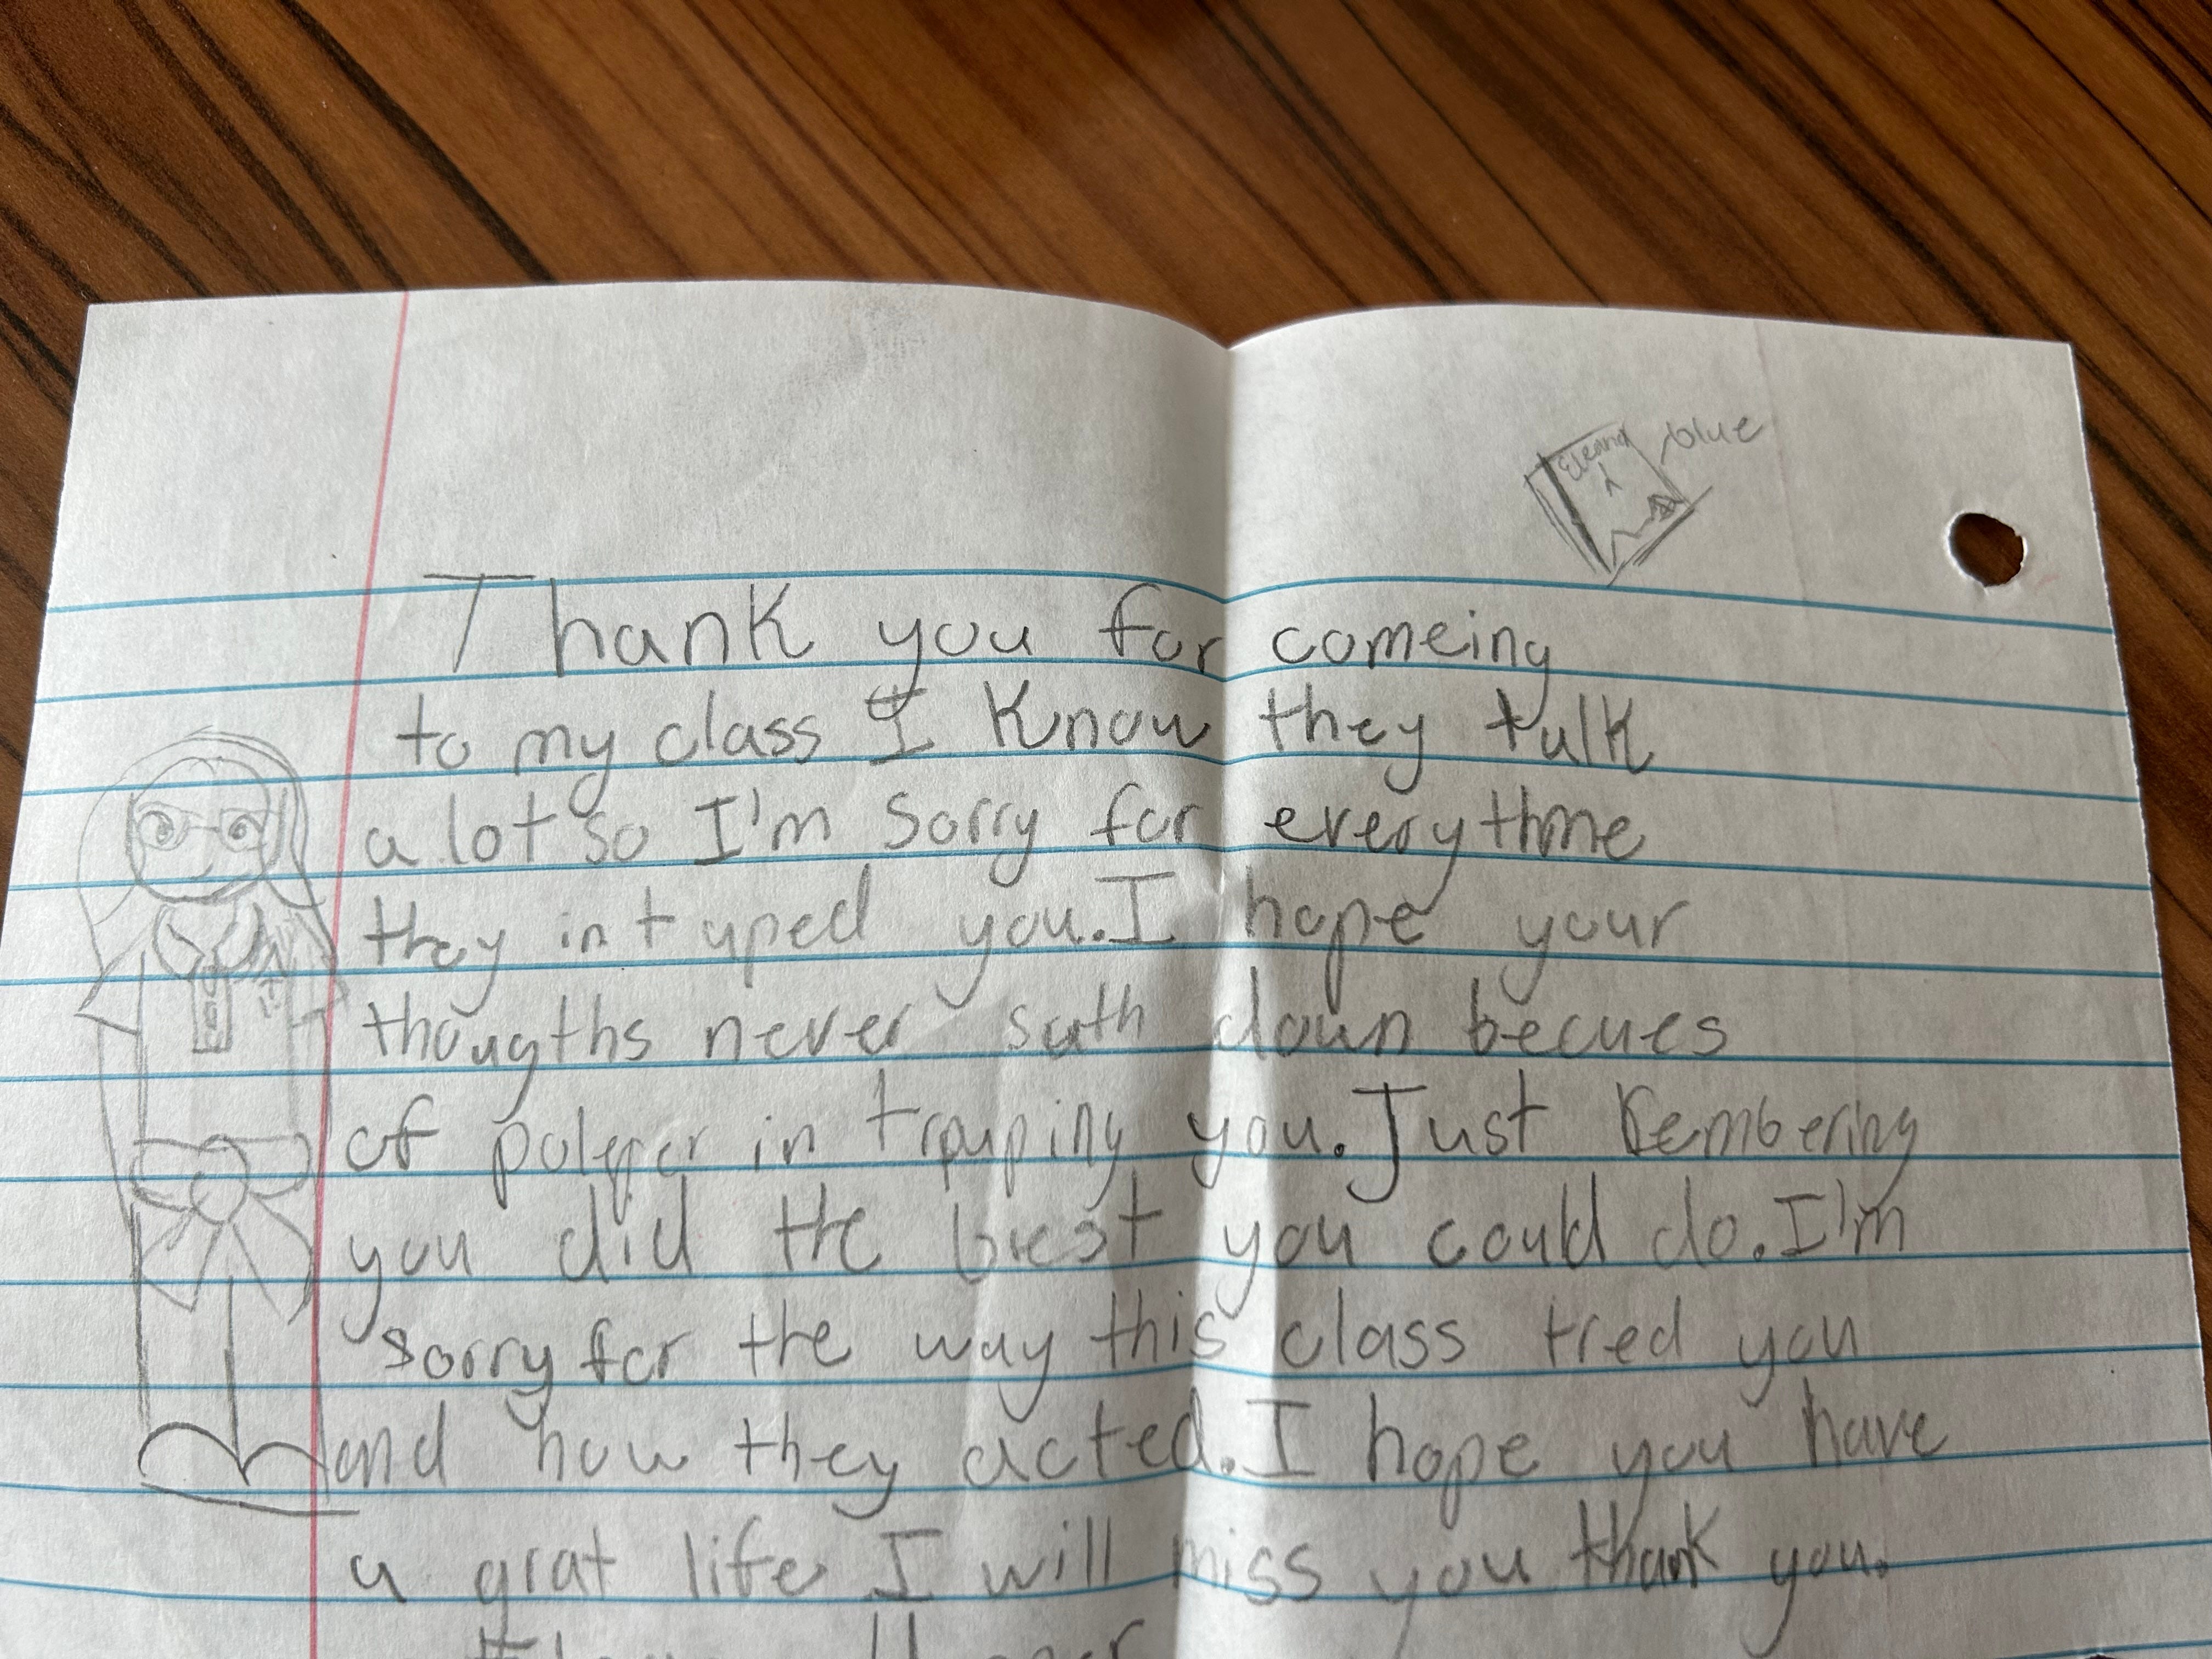 blue
Thank you for comeing
to my class I Know they talk
a lot so I'm Sorry for everythme
they intuped you. I hope your
thougths never suth down becues
of in trouping you. Just Rembering
you did the best you could do. I'm
sorry for the way this class tred you
and how they acted. I hope you have
a grat life I will miss you thank you.